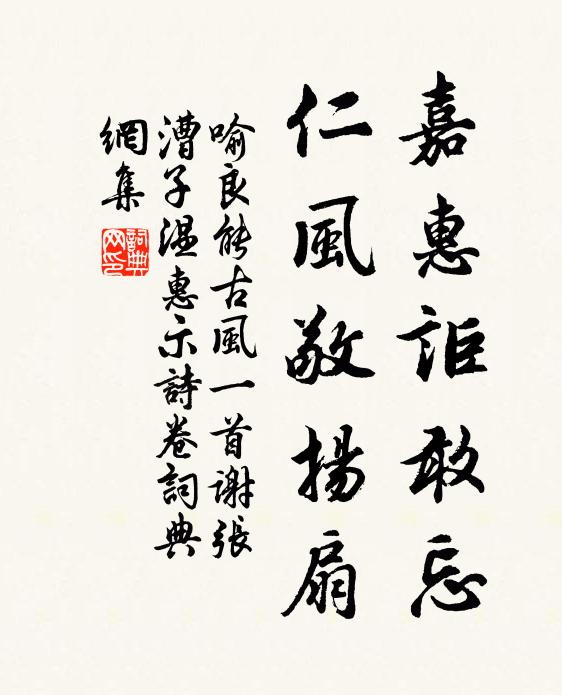 嘉惠詎敢忘
仁風敬揚扇
喻良能古風一首謝張
漕子温惠示詩卷詞典
網集
詞典
网印